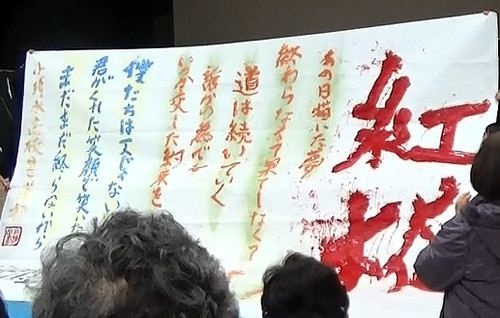 紅
あの日描いた夢
終わらなくて果てしなくて
道は続いていく
誰かの為で
交した約束を
僕たちは一人じゃない
君がくれた笑顔
まだまだ終らないから